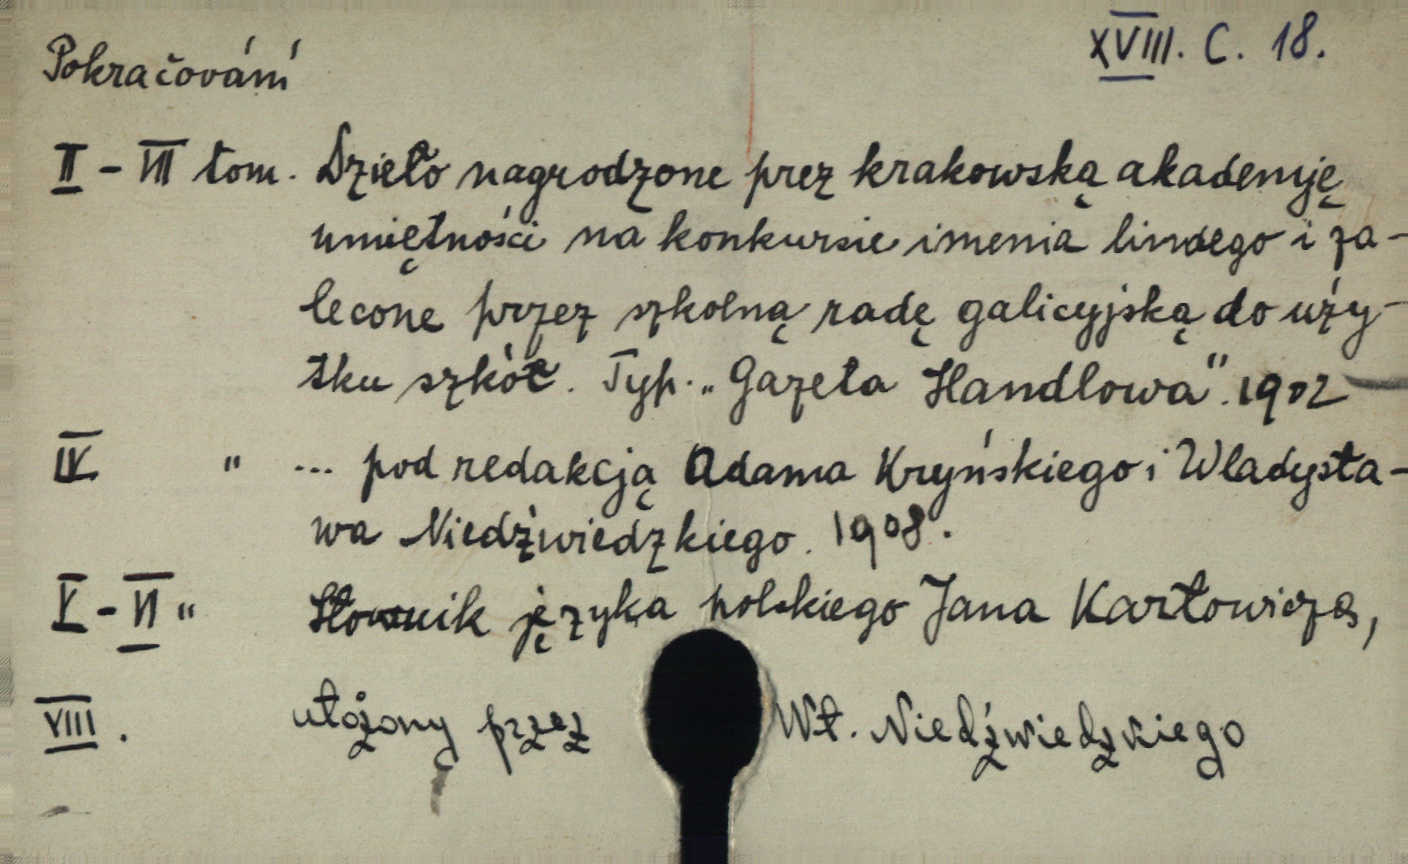 Pokračování
XVIII. C. 18.
II - VII tom. Dzieło nagrodzone prez krakowską akademję
umiętności na konkursie imenia lindego i za-
lecone przez szkolną radę galicyjską do uży-
tku szkół. Typ. „Gazeta Handlowa". 1902
IV " ... pod redakcją Adama Kryńskiego i Wladysła-
wa Niedźwiedzkiego. 1908.
V - VI " Słownik języka polskiego Jana Karłowicza,
VIII. ułożony przez Wł. Niedźwiedzkiego